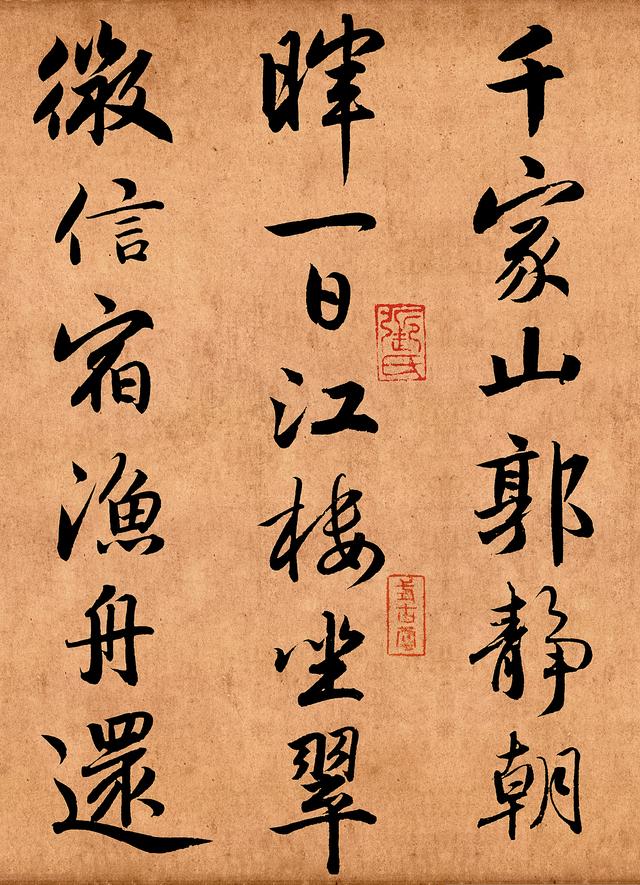 千家山郭静朝
暉一日江楼坐翠
微信宿漁舟還